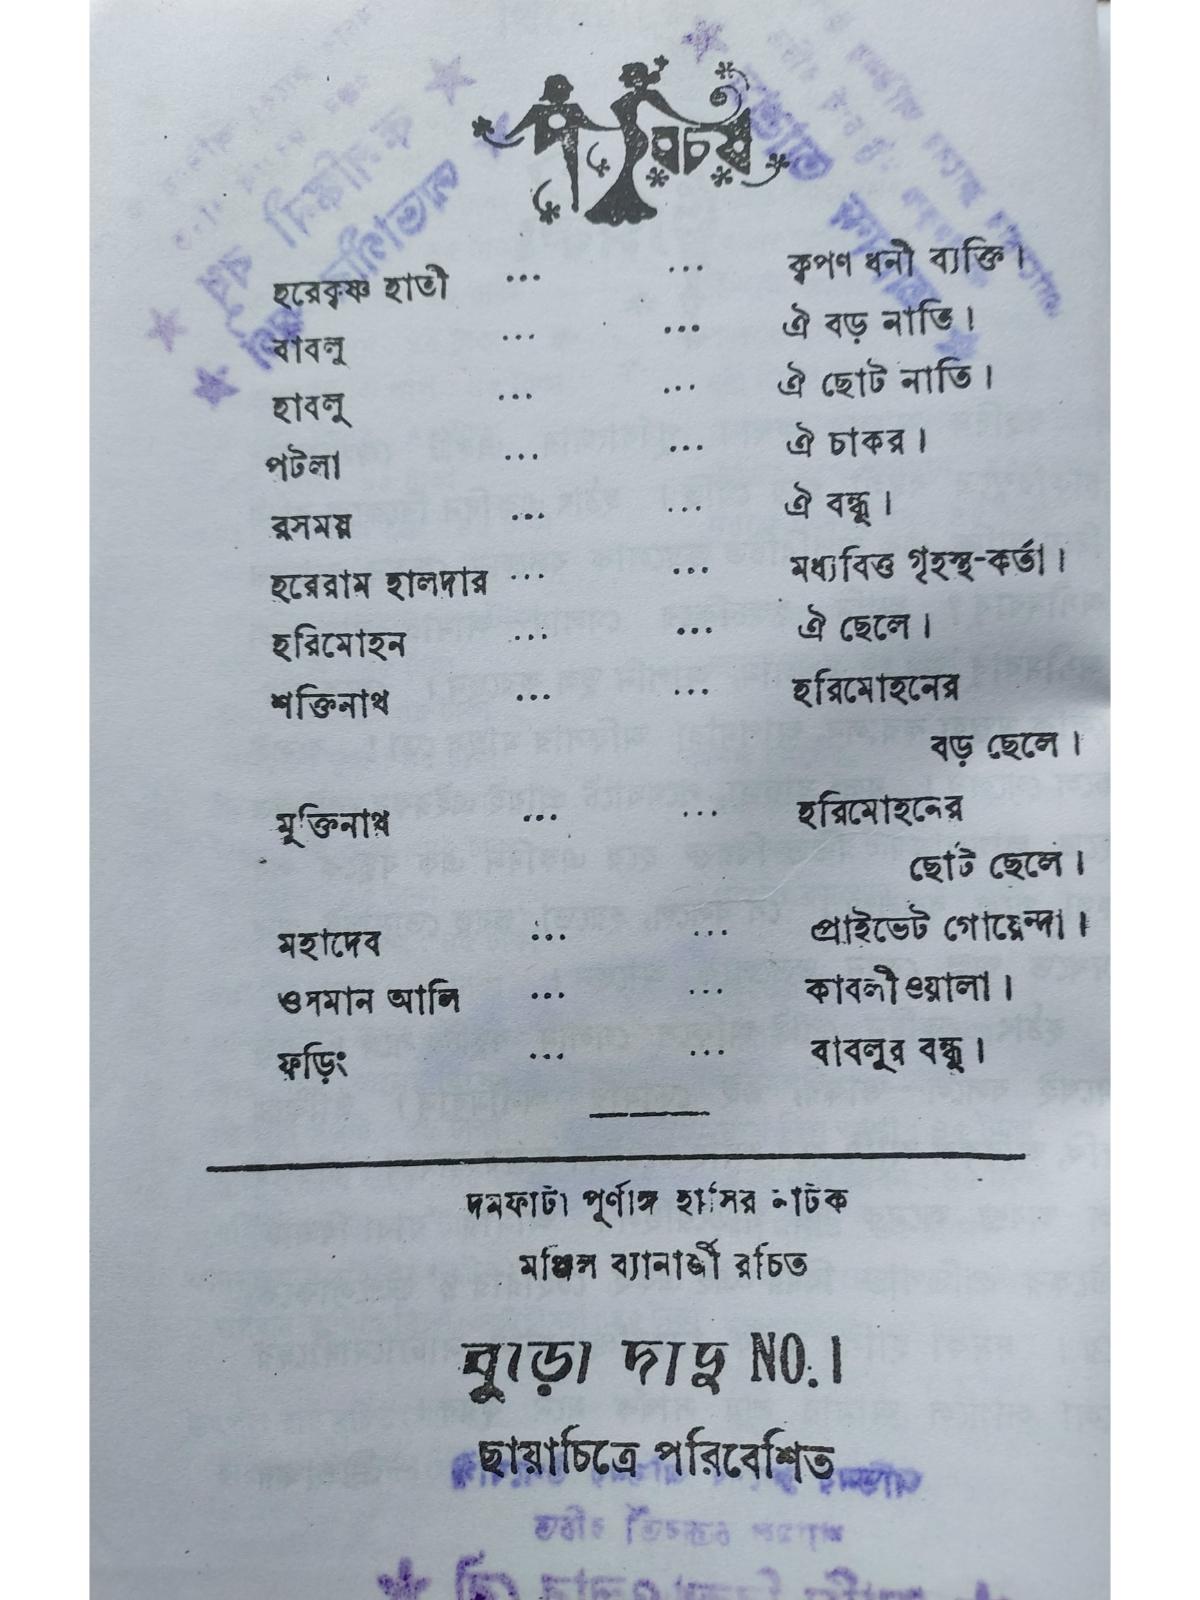 পরিচয়
হরেকৃষ্ণ হাতী ... ... কৃপণ ধনী ব্যক্তি।
বাবলু ... ... ঐ বড় নাতি।
হাবলু ... ... ঐ ছোট নাতি।
পটলা ... ... ঐ চাকর।
রসময় ... ... ঐ বন্ধু।
হরেরাম হালদার ... ... মধ্যবিত্ত গৃহস্থ-কর্তা।
হরিমোহন ... ... ঐ ছেলে।
শক্তিনাথ ... ... হরিমোহনের
বড় ছেলে।
মুক্তিনাথ ... ... হরিমোহনের
ছোট ছেলে।
মহাদেব ... ... প্রাইভেট গোয়েন্দা।
ওসমান আলি ... ... কাবলীওয়ালা।
ফড়িং ... ... বাবলুর বন্ধু।
দমফাটা পূর্ণাঙ্গ হাসির নাটক
ব্যানার্জী রচিত
বুড়ো দাদু NO. 1
ছায়াচিত্রে পরিবেশিত